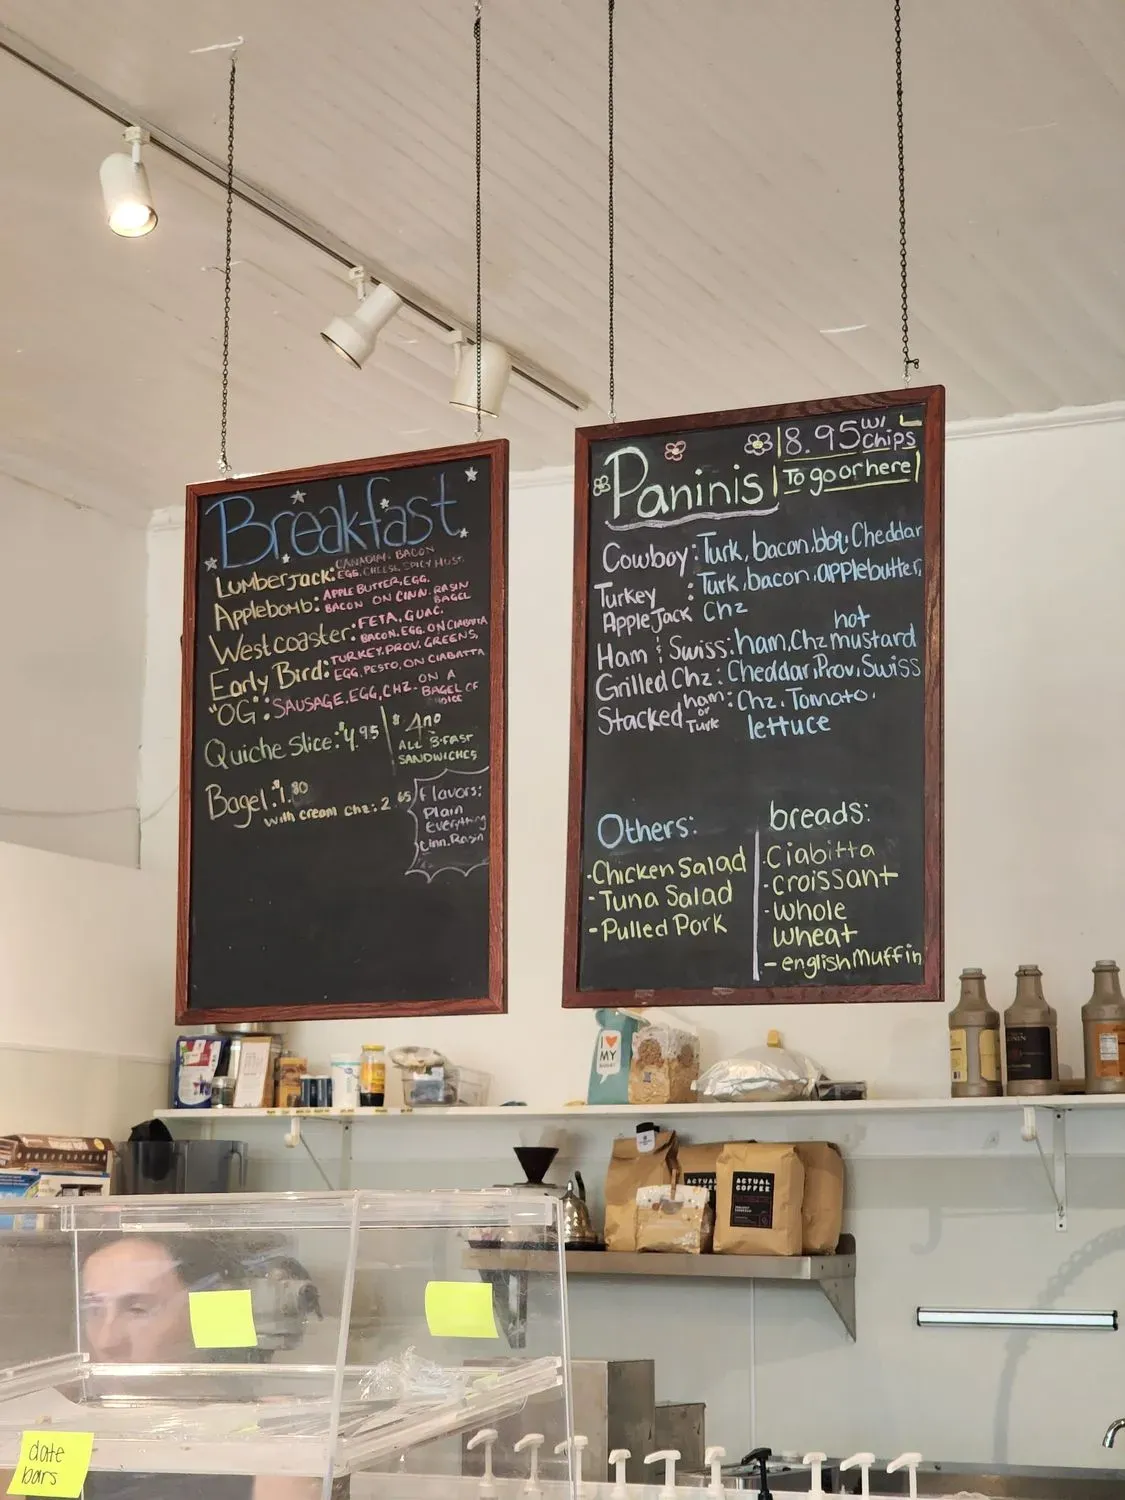 Breakfast
Lumberjack: CANADIAN BACON
EGG, CHEESE, SPICY MUST.
Applebomb: APPLE BUTTER, EGG,
BACON ON CINN. RASIN
BAGEL
Westcoaster: FETA, GUAC,
BACON, EGG, ON CIABATTA
Early Bird: TURKEY, PROV, GREENS,
EGG, PESTO, ON CIABATTA
"OG": SAUSAGE, EGG, CHZ. ON A
BAGEL OF
Quiche Slice: $4.95
ALL B-FAST
SANDWICHES
Bagel: $1.80
with cream chz: 2.65
Flavors:
Plain
Everything
Cinn. Rasin
Paninis
8.95 w/
Chips
To go or here
Cowboy: Turk, bacon, bbq, Cheddar
Turkey : Turk, bacon, applebutter,
AppleJack Chz
hot
Ham & Swiss: ham, Chz mustard
Grilled Chz: Cheddar, Prov, Swiss
Stacked ham or Turk : Chz, Tomato,
lettuce
Others:
-Chicken Salad
-Tuna Salad
-Pulled Pork
breads:
-Ciabitta
-croissant
-whole
wheat
-english Muffin
I ♥
MY
ACTUAL
COFFEE
date
bars